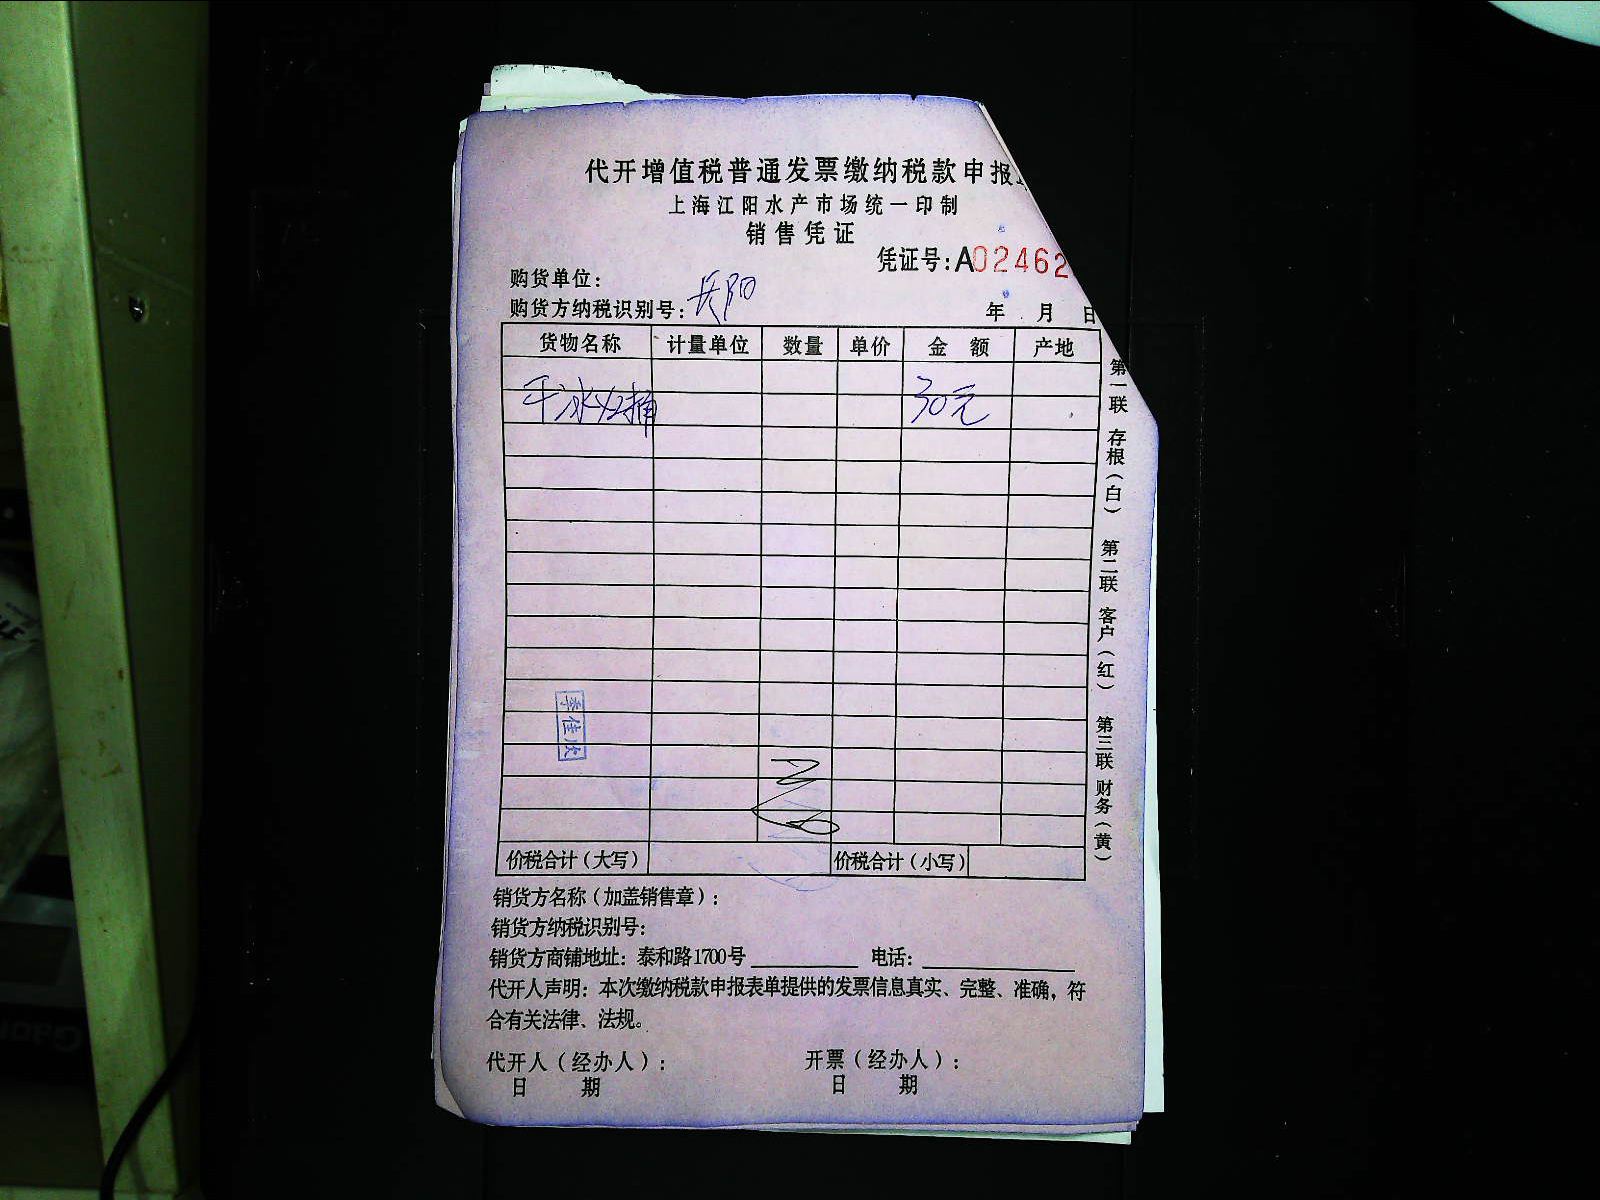 代开增值税普通发票缴纳税款申报
上海江阳水产市场统一印制
销售凭证
凭证号:A02462
购货单位:
购货方纳税识别号: 长阳
年 月 日
货物名称 计量单位 数量 单价 金 额 产地
干冰 30元
第一联 存根(白) 第二联 客户(红) 第三联 财务(黄)
李佳欣
价税合计(大写) 价税合计(小写)
销货方名称(加盖销售章):
销货方纳税识别号:
销货方商铺地址: 泰和路1700号 电话:
代开人声明: 本次缴纳税款申报表单提供的发票信息真实、完整、准确，符
合有关法律、法规。
代开人(经办人): 开票(经办人):
日 期 日 期